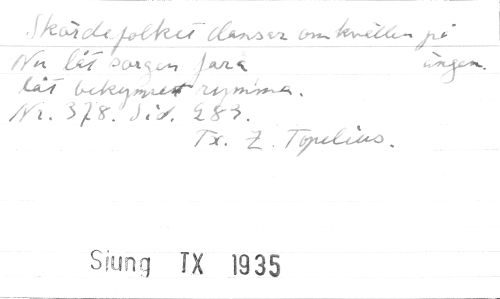 Skördefolket dansar om kvällen på
ängen.
Nu låt sorgen fara
låt bekymret rymma.
Nr. 378. Sid. 283.
Tx. Z. Topelius.
Siung TX 1935